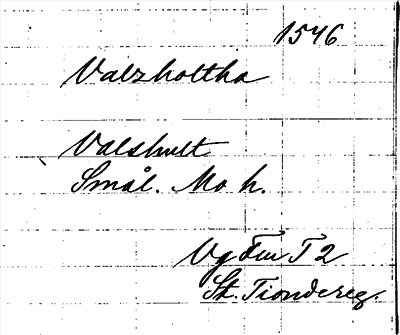 1546
Valzholtha
Valshult
Smål. Mo h.
Vg Fm T 2
St. Tiondereg.